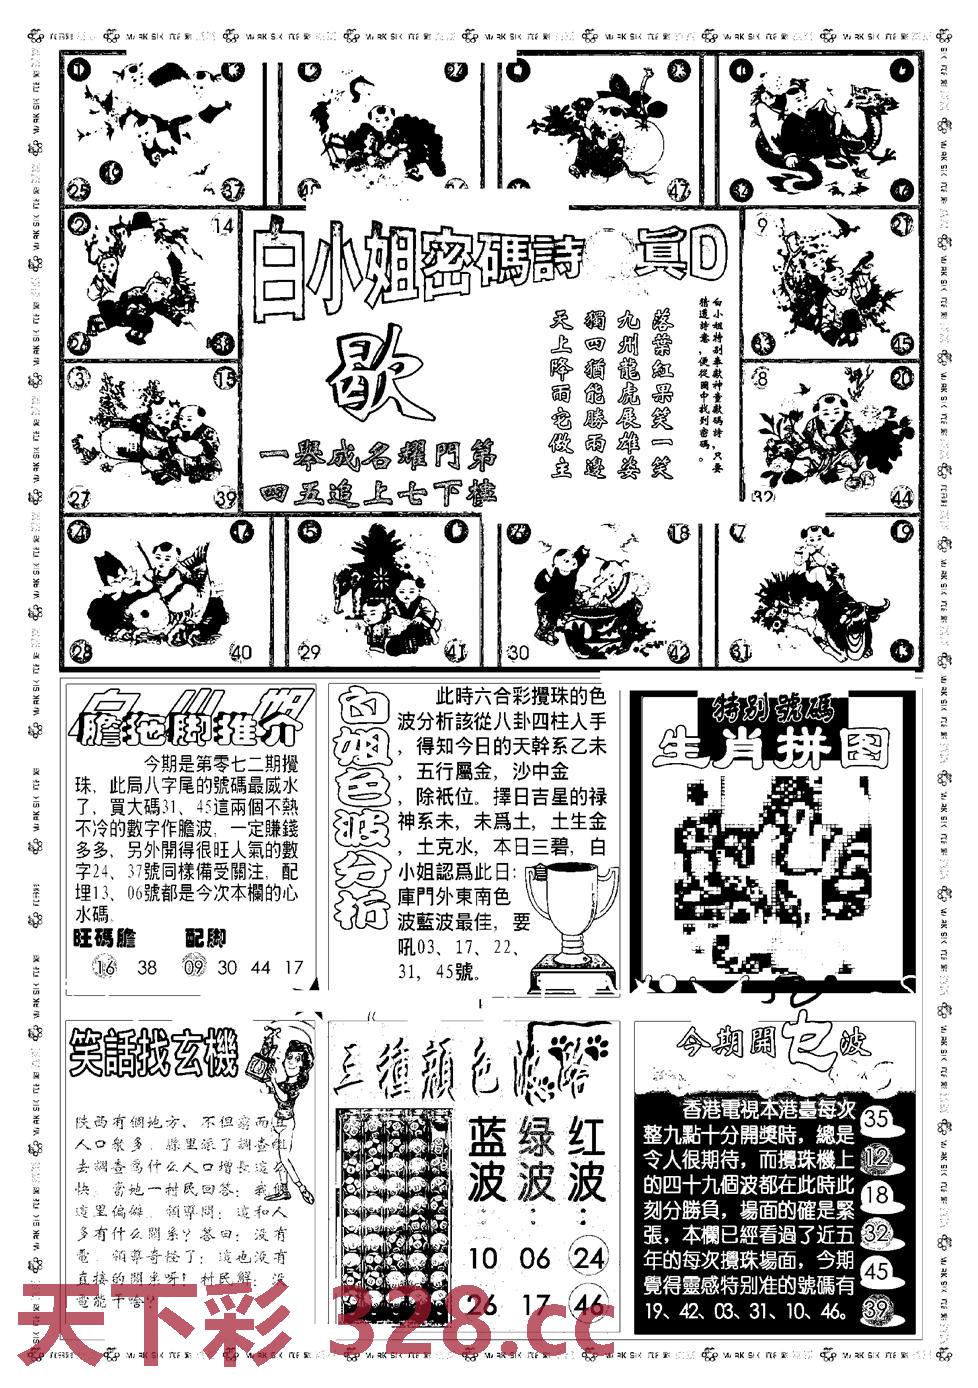 25
37
47
2
14
9
21
白小姐密碼詩
眞D
歇
一舉成名耀門第
四五追上七下樓
白小姐特別奉獻神童獻碼詩，只要
猜透詩意，便從圖中找到密碼。
落葉紅果笑一笑
九州龍虎展雄姿
獨四猶能勝兩邊
天上降雨它做主
33
45
3
15
8
20
27
39
32
44
5
18
7
19
28
40
29
41
30
42
31
膽拖脚推介
今期是第零七二期攪
珠，此局八字尾的號碼最威水
了，買大碼31、45這兩個不熱
不冷的數字作膽波，一定賺錢
多多，另外開得很旺人氣的數
字24、37號同樣備受關注，配
埋13、06號都是今次本欄的心
水碼。
旺碼膽 配脚
16 38 09 30 44 17
白姐色波分析
此時六合彩攪珠的色
波分析該從八卦四柱人手
，得知今日的天幹系乙未
，五行屬金，沙中金
，除衹位。擇日吉星的禄
神系未，未爲土，土生金
，土克水，本日三碧，白
小姐認爲此日：倉
庫門外東南色
波藍波最佳，要
吼03、17、22、
31、45號。
特别號碼
生肖拼图
笑話找玄機
陕西有個地方，不但窮而且
人口衆多，縣里派了調查組
去調查爲什么人口增長這么
快，當地一村民回答：我們
這里偏僻，領導問：這和人
多有什么關系？答曰：没有
電，領導奇怪了：這也没有
直接的關系呀！村民解：没
電能干啥？
三種顔色波路
蓝波： 绿波： 红波：
10 06 24
26 17 46
今期開乜波
香港電視本港臺每次
整九點十分開獎時，總是
令人很期待，而攪珠機上
的四十九個波都在此時此
刻分勝負，場面的確是緊
張，本欄已經看過了近五
年的每次攪珠場面，今期
覺得靈感特别准的號碼有
19、42、03、31、10、46。
35
12
18
32
45
39
天下彩 328.cc